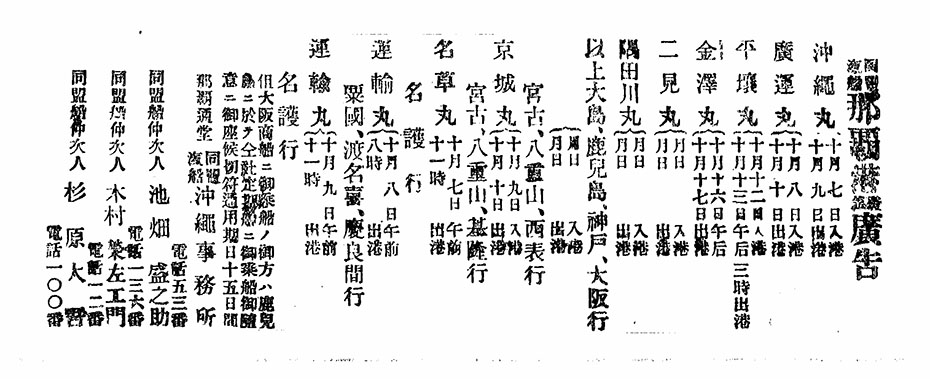 同盟滊船那覇港發着廣告
沖繩丸 十月七日入港
十月九日出港
廣運丸 十月八日入港
十月十日出港
平壤丸 十月十二日入港
十月十三日午后三時出港
金澤丸 十月十六日午后
十月十七日出港
二見丸 月日入港
月日出港
隅田川丸 月日入港
月日出港
以上大島、鹿兒島、神戸、大阪行
月日入港
月日出港
宮古、八重山、西表行
京城丸 十月九日入港
十月十日出港
宮古、八重山、基隆行
名草丸 十月七日午前
十一時出港
名護行
運輸丸 十月八日午前
八時出港
粟國、渡名喜、慶良間行
運輸丸 十月九日午前
十一時出港
名護行
但大阪商船ニ御乘船ノ御方ハ鹿兒
島ニ於テ全社定期船ニ御乘船御隨
意ニ御座候切符通用期日十五日間
那覇通堂 同盟滊船 沖繩事務所
電話五三番
同盟船仲次人 池畑盛之助
電話一三六番
同盟船仲次人 木村榮左工門
電話一二番
同盟船仲次人 杉原大
電話一〇〇番